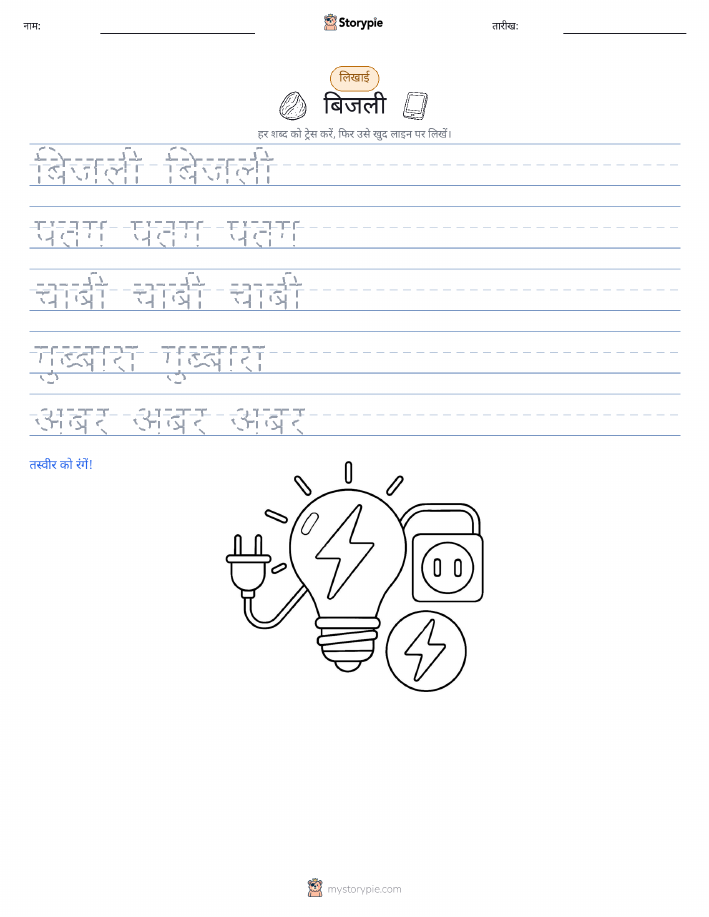 नाम:
Storypie
तारीख:
लिखाई
बिजली
हर शब्द को ट्रेस करें, फिर उसे खुद लाइन पर लिखें।
बिजली बिजली
पतग पतग पतग
चाबी चाबी चाबी
गुब्बारा गुब्बारा
अबर अबर अबर
तस्वीर को रंगें!
mystorypie.com